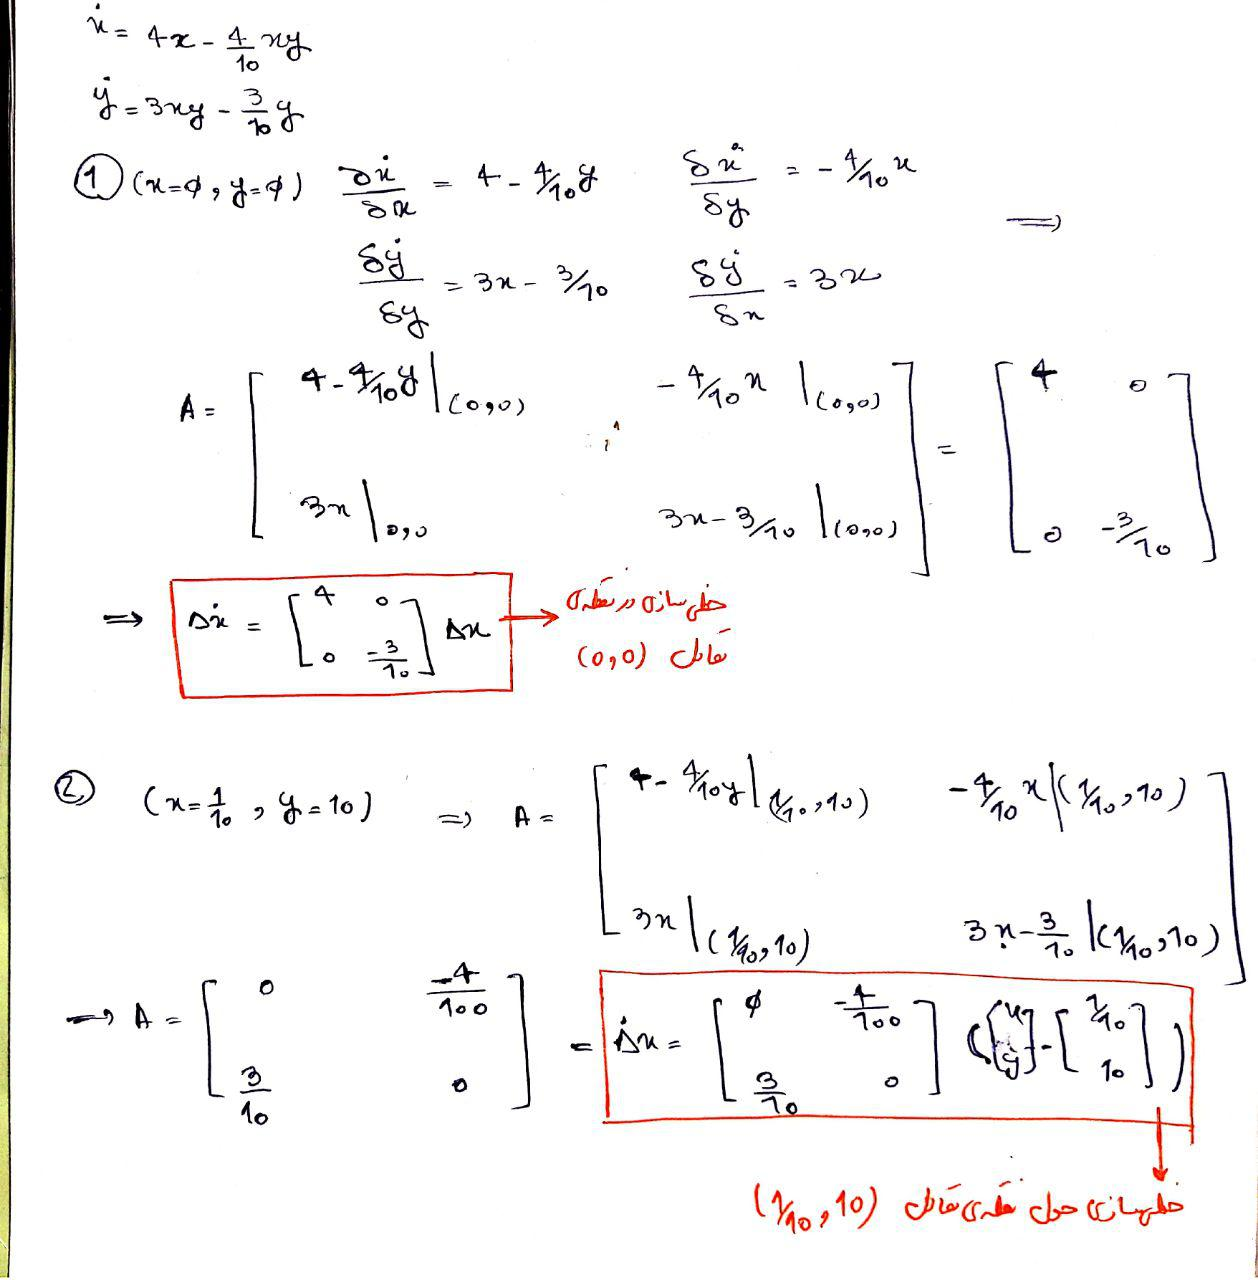 ẋ = 4x - 4/10 xy
ẏ = 3xy - 3/10 y
① (x=0, y=0) δẋ/δx = 4 - 4/10 y δẋ/δy = - 4/10 x ⇒
δẏ/δy = 3x - 3/10 δẏ/δx = 3x
A = [ 4 - 4/10 y |(0,0) - 4/10 x |(0,0) ] = [ 4 0 ]
[ 3x |0,0 3x - 3/10 |(0,0) ] [ 0 -3/10 ]
⇒ Δẋ = [ 4 0 ; 0 -3/10 ] Δx → خطی سازی در نقطه‌ی
تعادل (0,0)
② (x = 1/10, y = 10) ⇒ A = [ 4 - 4/10 y |(1/10, 10) - 4/10 x |(1/10, 10) ]
[ 3x |(1/10, 10) 3x - 3/10 |(1/10, 10) ]
→ A = [ 0 -4/100 ; 3/10 0 ] = Δẋ = [ 0 -4/100 ; 3/10 0 ] ([ x ; y ] - [ 1/10 ; 10 ])
خطی سازی حول نقطه‌ی تعادل (1/10, 10)